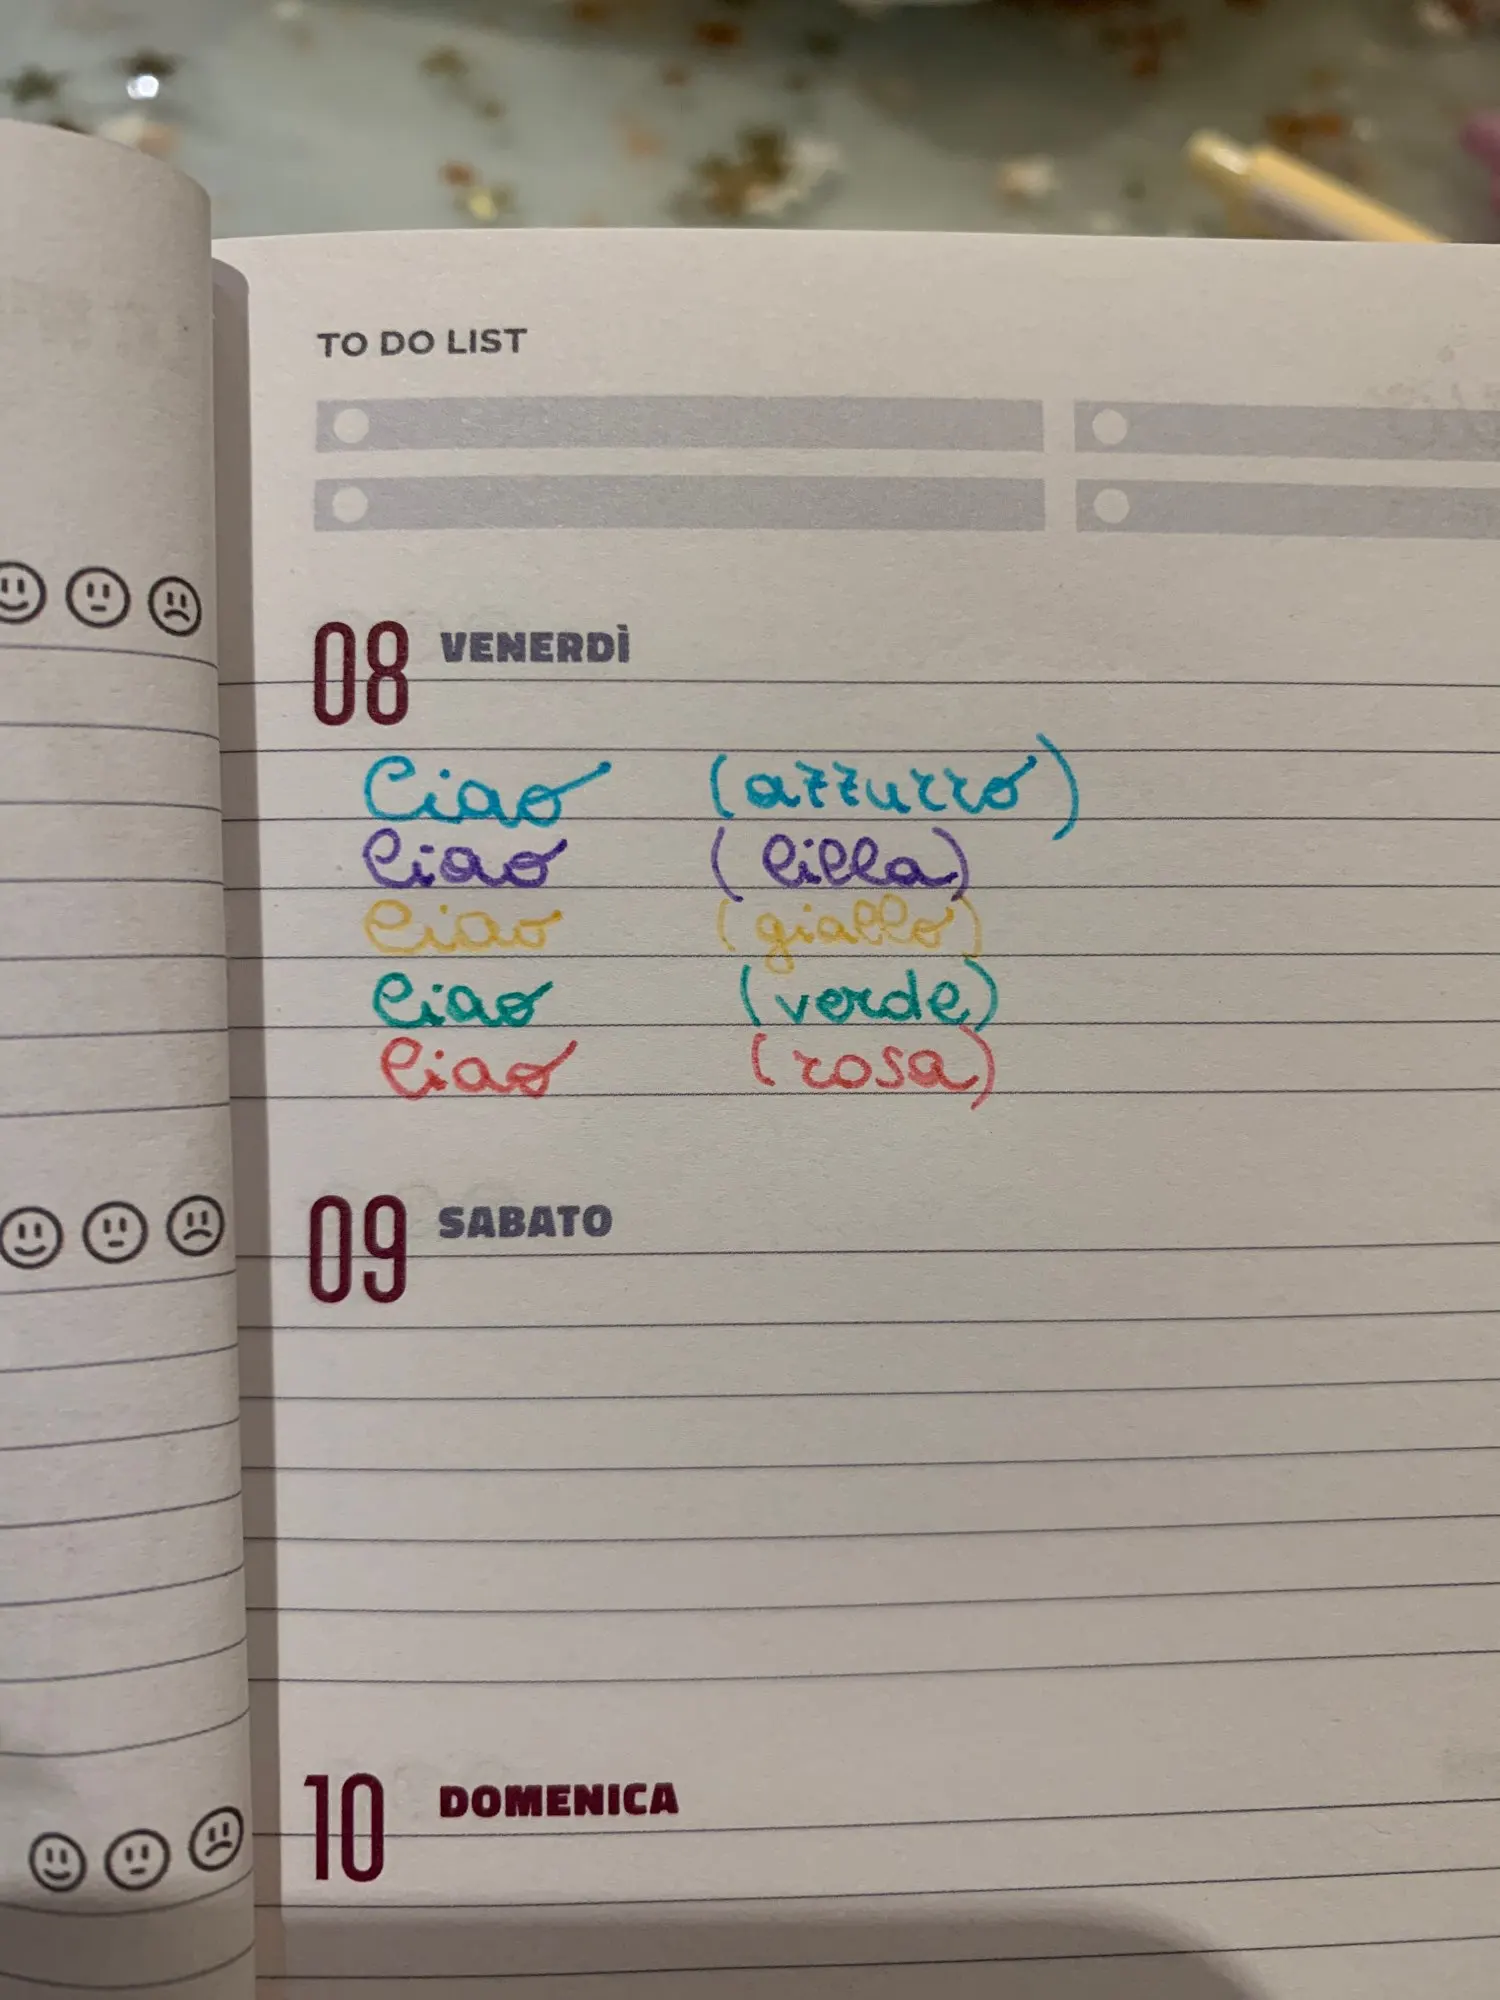 TO DO LIST
08 VENERDÌ
Ciao (azzurro)
Ciao (lilla)
Ciao (giallo)
Ciao (verde)
Ciao (rosa)
09 SABATO
10 DOMENICA